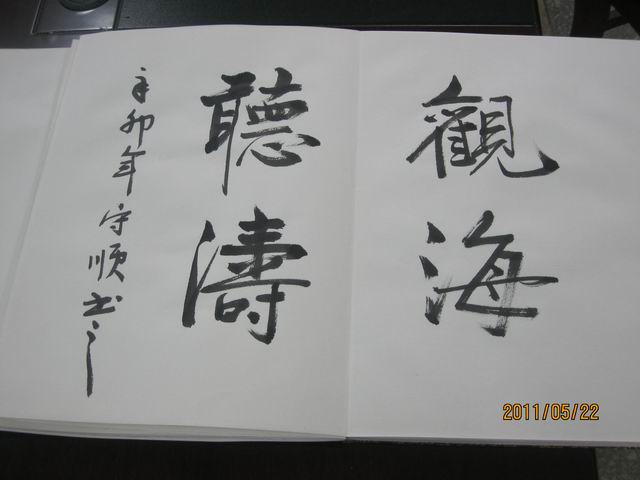 觀海
聽濤
辛卯年守順书之
2011/05/22